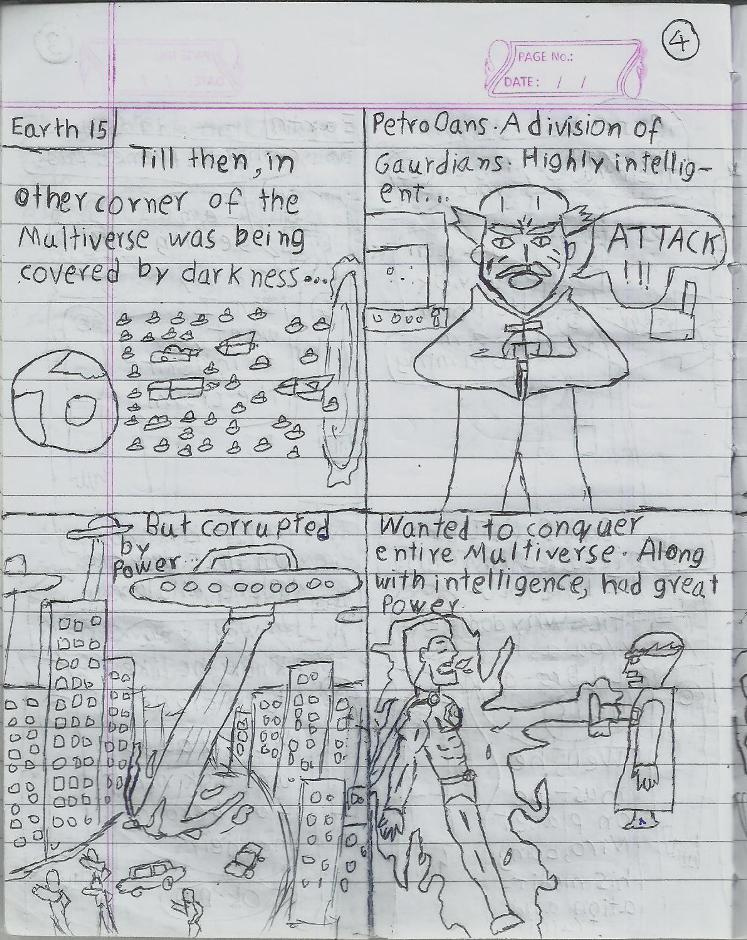 4
PAGE No.:
DATE: / /
Earth 15
Till then, in
other corner of the
Multiverse was being
covered by darkness...
PetroOans. A division of
Gaurdians. Highly intellig-
ent...
ATTACK
!!!
But corrupted
by
Power...
Wanted to conquer
entire Multiverse. Along
with intelligence, had great
Power